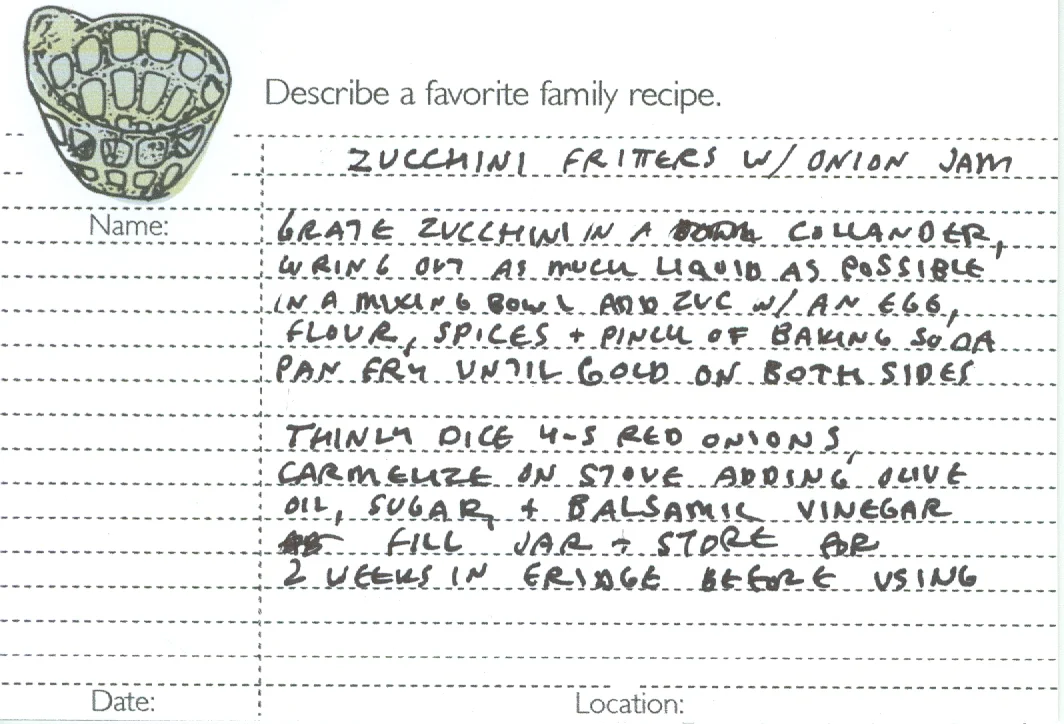 Describe a favorite family recipe.
ZUCCHINI FRITTERS W/ ONION JAM
Name:
GRATE ZUCCHINI IN A COLLANDER,
WRING OUT AS MUCH LIQUID AS POSSIBLE
IN A MIXING BOWL AND ZUC W/ AN EGG,
FLOUR, SPICES + PINCH OF BAKING SODA
PAN FRY UNTIL GOLD ON BOTH SIDES
THINLY DICE 4-5 RED ONIONS,
CARMELIZE ON STOVE ADDING OLIVE
OIL, SUGAR, + BALSAMIC VINEGAR
FILL JAR + STORE FOR
2 WEEKS IN FRIDGE BEFORE USING
Date:
Location: